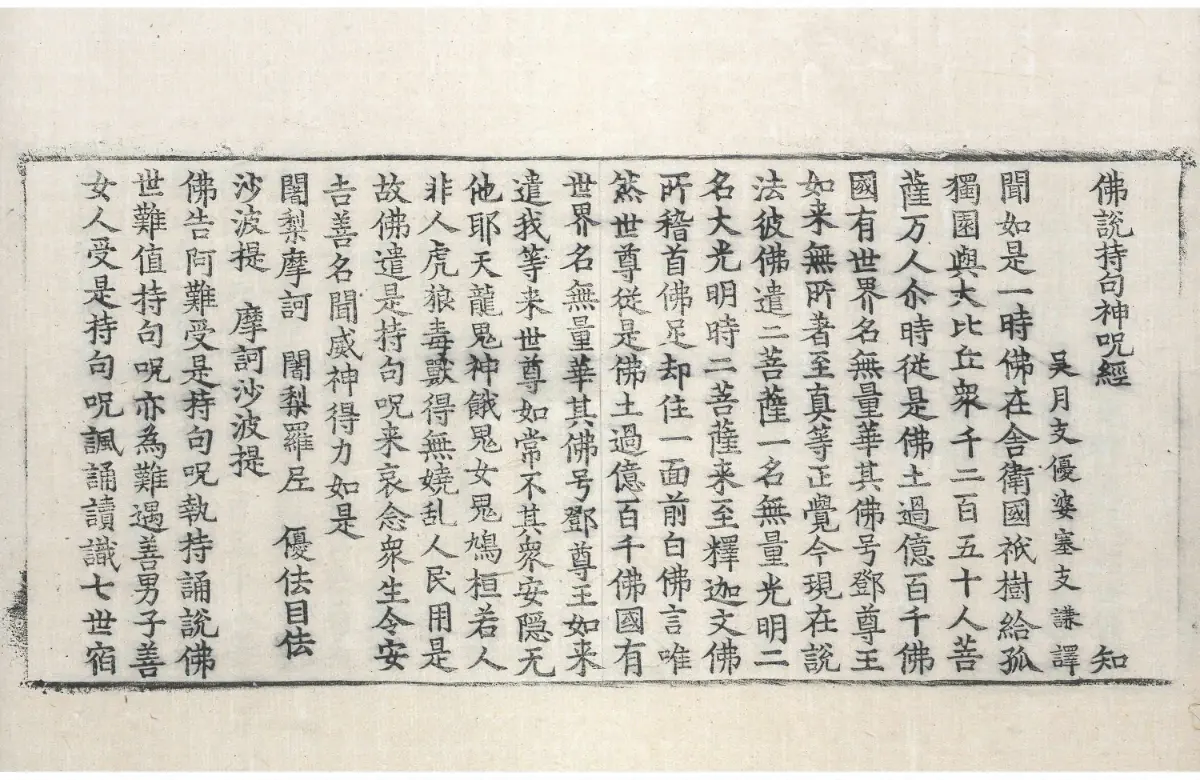 佛說持句神呪經 知
吳月支優婆塞支謙譯
聞如是一時佛在舎衛國祇樹給孤
獨園與大比丘衆千二百五十人菩
薩万人尒時從是佛土過億百千佛
國有世界名無量華其佛号鄧尊王
如来無所著至真等正覺今現在說
法彼佛遣二菩薩一名無量光明二
名大光明時二菩薩来至釋迦文佛
所稽首佛足却住一面前白佛言唯
然世尊從是佛土過億百千佛國有
世界名無量華其佛号鄧尊王如来
遣我等来世尊如常不其衆安隱无
他耶天龍鬼神餓鬼女鬼鳩桓若人
非人虎狼毒獸得無嬈乱人民用是
故佛遣是持句呪来哀念衆生令安
吉善名聞威神得力如是
闍梨摩訶 闍梨羅𡰱 優佉目佉
沙波提 摩訶沙波提
佛告阿難受是持句呪執持誦說佛
世難值持句呪亦為難遇善男子善
女人受是持句呪諷誦讀識七世宿